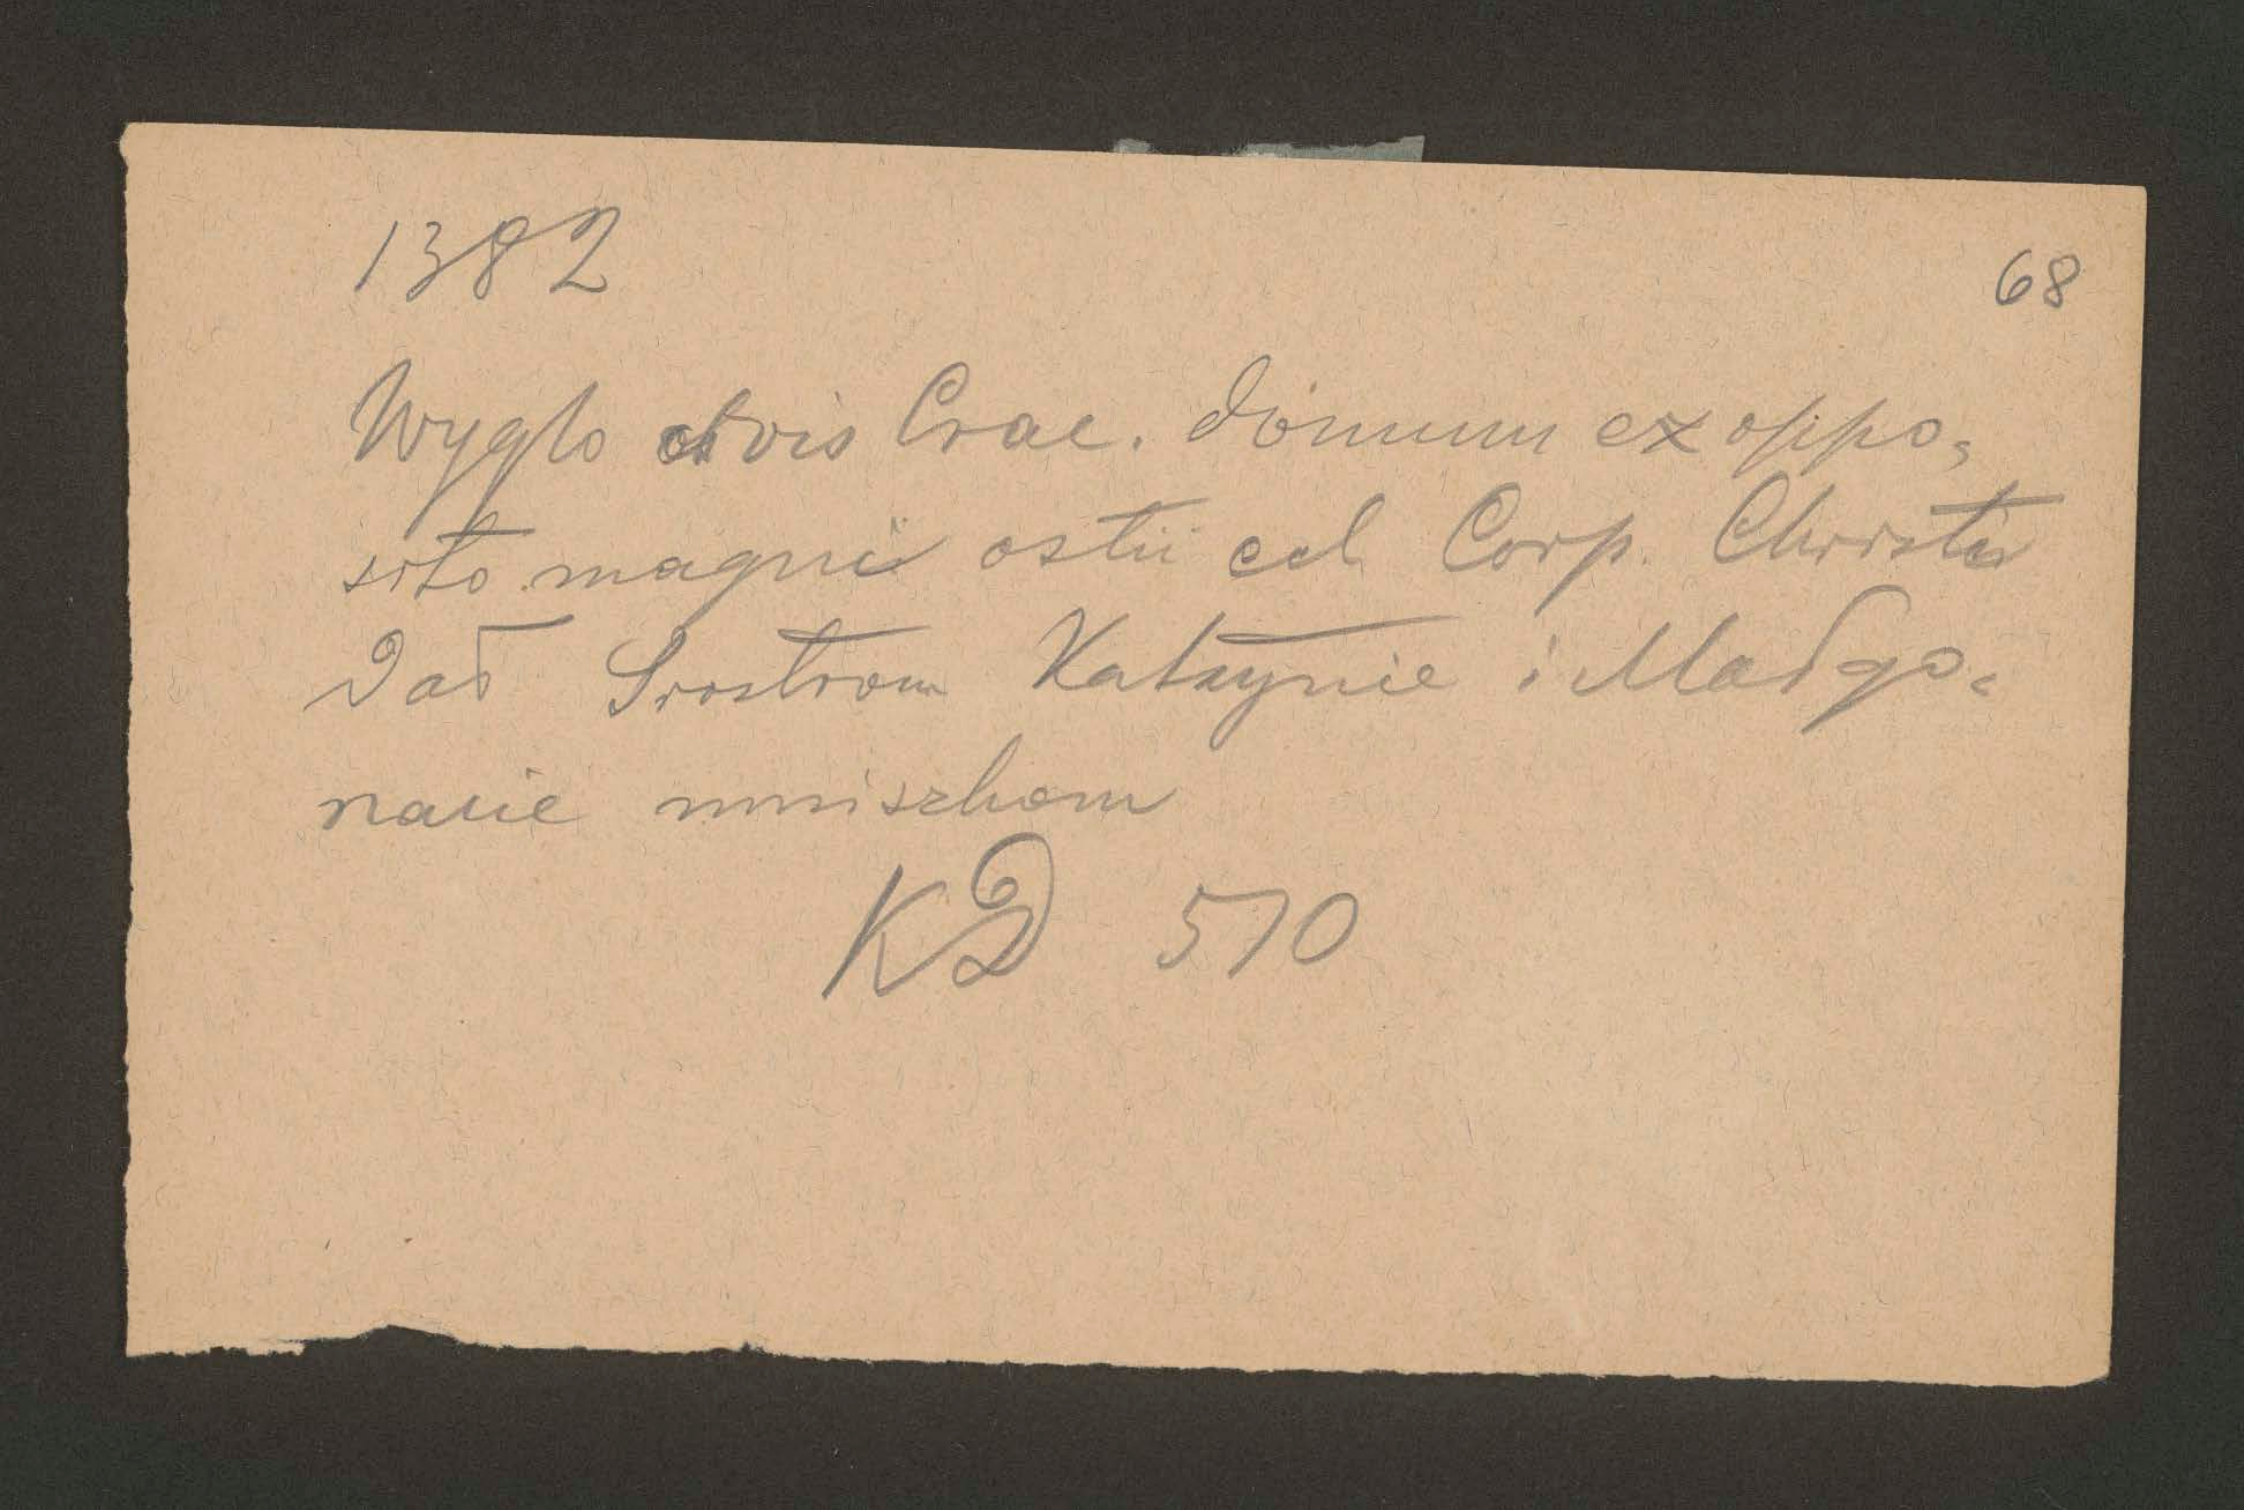 1382
68
Wyglo civis Crac. domum ex oppo-
sito magni ostii eccl Corp. Christi
Dał Siostrom Katzynie i Małgo-
rzacie mniszkom
KD 570